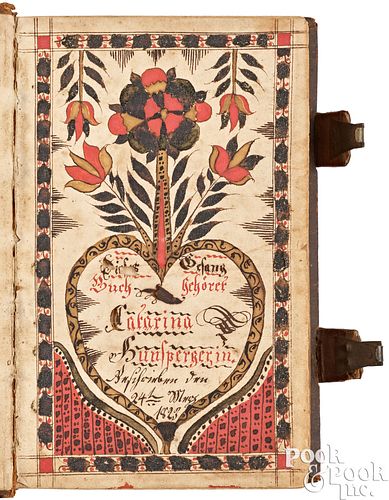 Dieses Gesang
Buch gehöret
Catarina
Hunspergerin.
Geschrieben den
24ten Merz
1823
POOK
& POOK
Inc.